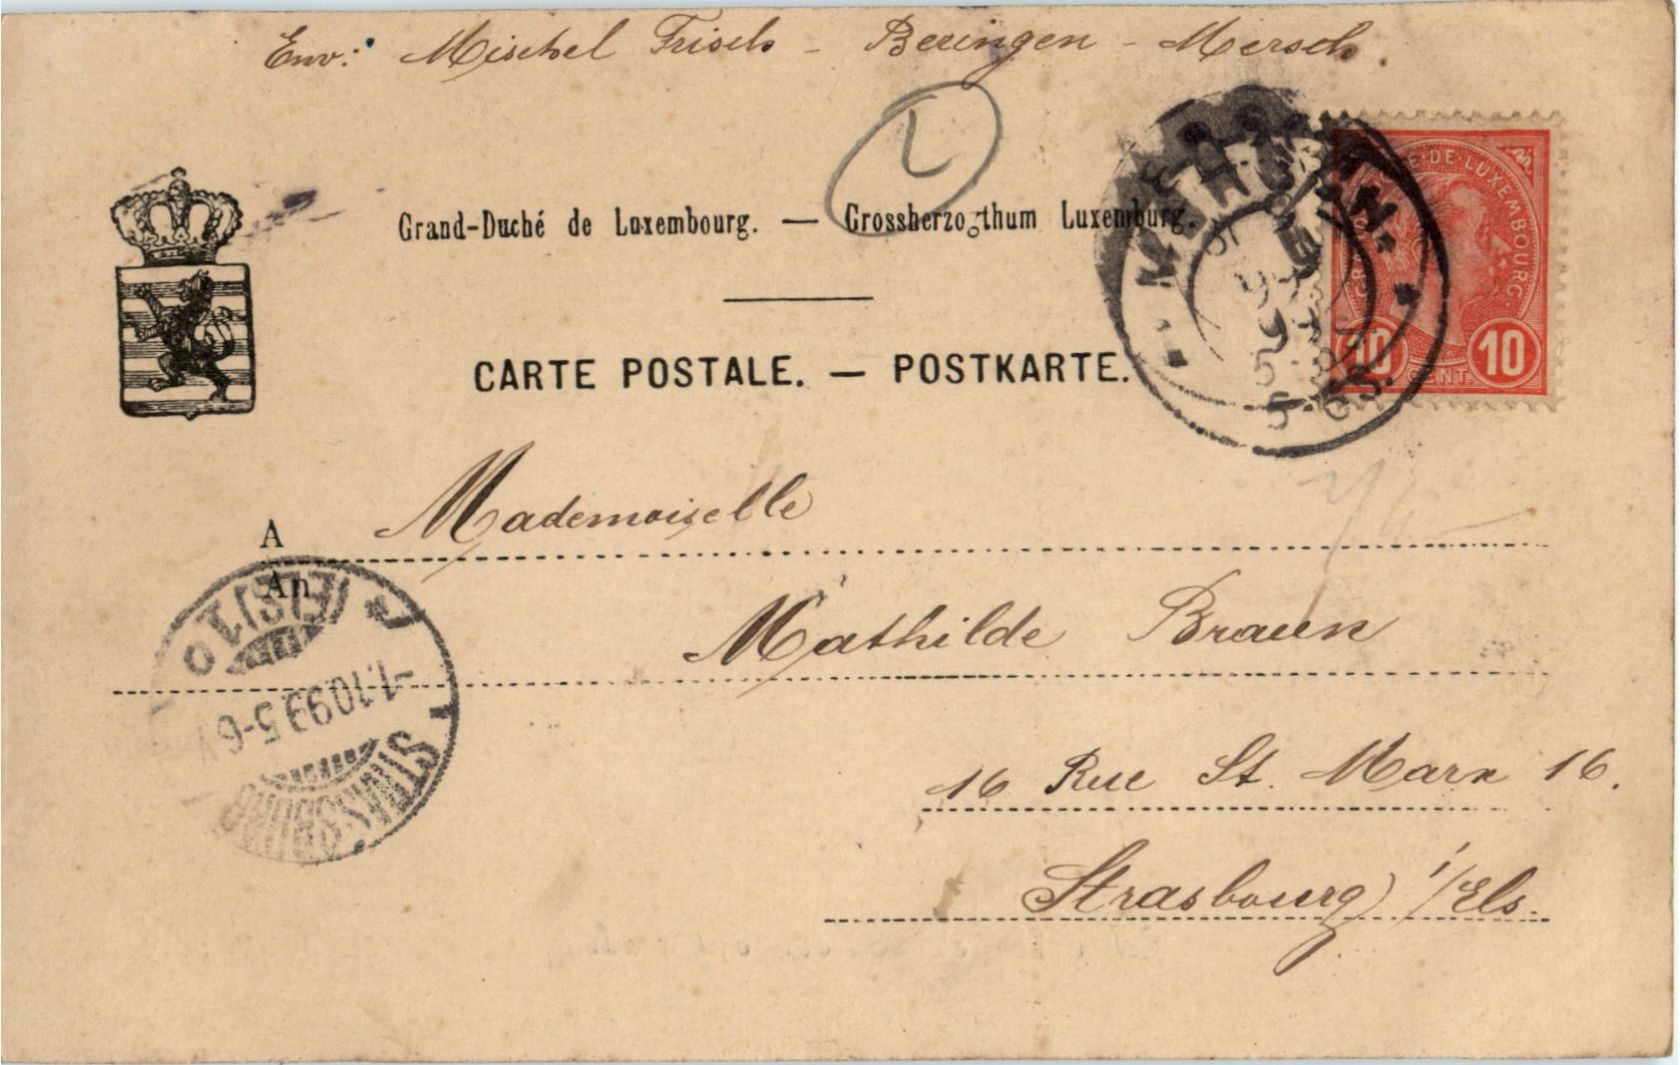 Env: Mischel Frisch - Beringen - Mersch.
Grand-Duché de Luxembourg. — Grossherzogthum Luxemburg.
CARTE POSTALE. — POSTKARTE.
MERSCH
DE LUXEMBOURG
10 CENT. 10
A Mademoiselle
An
Mathilde Braun
16 Rue St. Marx 16.
Strasbourg i/Els.
STRASSBURG
-1.10.99. 5-6
(ELS) 1